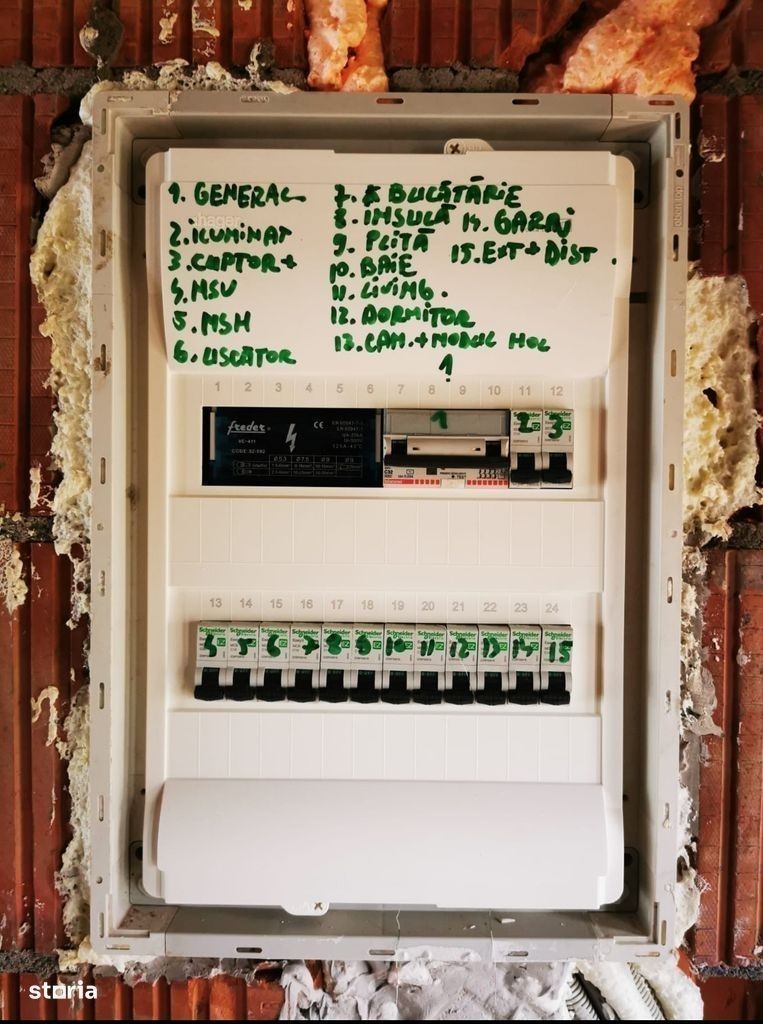 1. GENERAL
2. ILUMINAT
3. CUPTOR +
4. MSV
5. MSH
6. USCĂTOR
7. BUCĂTĂRIE
8. INSULĂ
9. PLITĂ
10. BAIE
11. LIVING.
12. DORMITOR
13. CAM. + MODUL HOL
1
14. GARAJ
15. EXT + DIST.
hager
1 2 3 4 5 6 7 8 9 10 11 12
freder
CE
1
C32
2 3
13 14 15 16 17 18 19 20 21 22 23 24
Schneider Schneider Schneider Schneider Schneider Schneider Schneider Schneider Schneider Schneider Schneider Schneider
4 5 6 7 8 9 10 11 12 13 14 15
storia